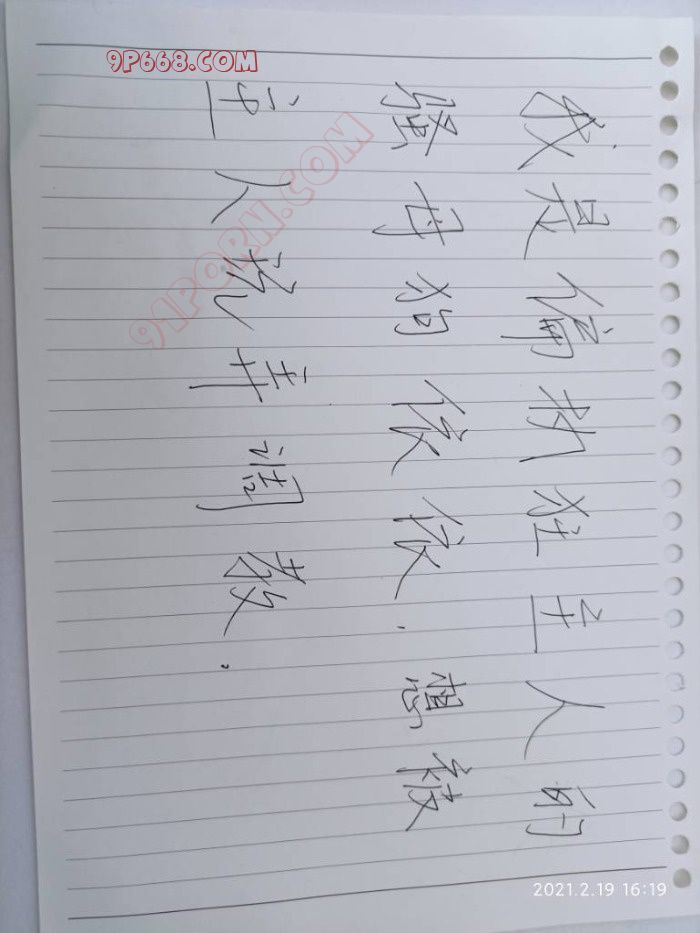 9P668.COM
91PORN.COM
我是偏执狂主人的
骚母狗依依.想被
主人玩弄调教.
2021.2.19 16:19